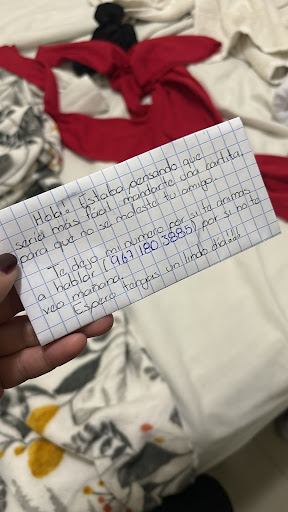 Hola! Estaba pensando que
sería más fácil mandarte una cartita,
para que no se moleste tu amigo.
Te dejo mi número por si te animas
a hablar (967 180 3885) por si no te
veo mañana.
Espero tengas un lindo día!!!